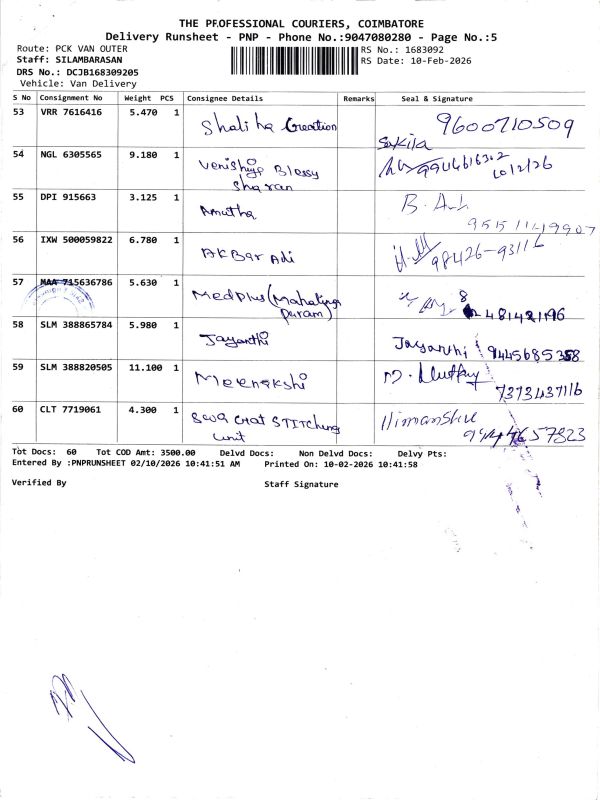 THE PROFESSIONAL COURIERS, COIMBATORE
Delivery Runsheet - PNP - Phone No.:9047080280 - Page No.:5
Route: PCK VAN OUTER RS No.: 1683092
Staff: SILAMBARASAN RS Date: 10-Feb-2026
DRS No.: DCJB168309205
Vehicle: Van Delivery
S No Consignment No Weight PCS Consignee Details Remarks Seal & Signature
53 VRR 7616416 5.470 1 Shaliha Creation 9600710509
Sakila
54 NGL 6305565 9.180 1 Blessy
Sharan 10/2/26
55 DPI 915663 3.125 1 Amutha B.
56 IXW 500059822 6.780 1 AKBar Adi 98426-93116
57 MAA 715636786 5.630 1 Medplus (Mahalinga
puram)
58 SLM 388865784 5.980 1 Jayanthi Jayanthi
59 SLM 388820505 11.100 1 Meenakshi M.
7373437116
60 CLT 7719061 4.300 1 STITChing Himanshu
unit
Tot Docs: 60 Tot COD Amt: 3500.00 Delvd Docs: Non Delvd Docs: Delvy Pts:
Entered By :PNPRUNSHEET 02/10/2026 10:41:51 AM Printed On: 10-02-2026 10:41:58
Verified By Staff Signature